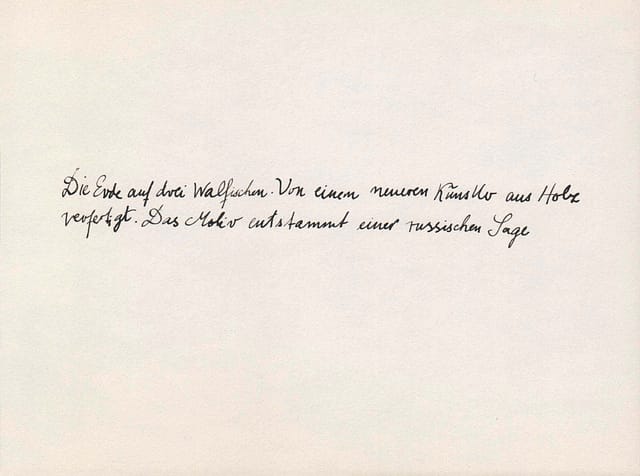 Die Erde auf drei Walfischen. Von einem neueren Künstler aus Holz
verfertigt. Das Motiv entstammt einer russischen Sage